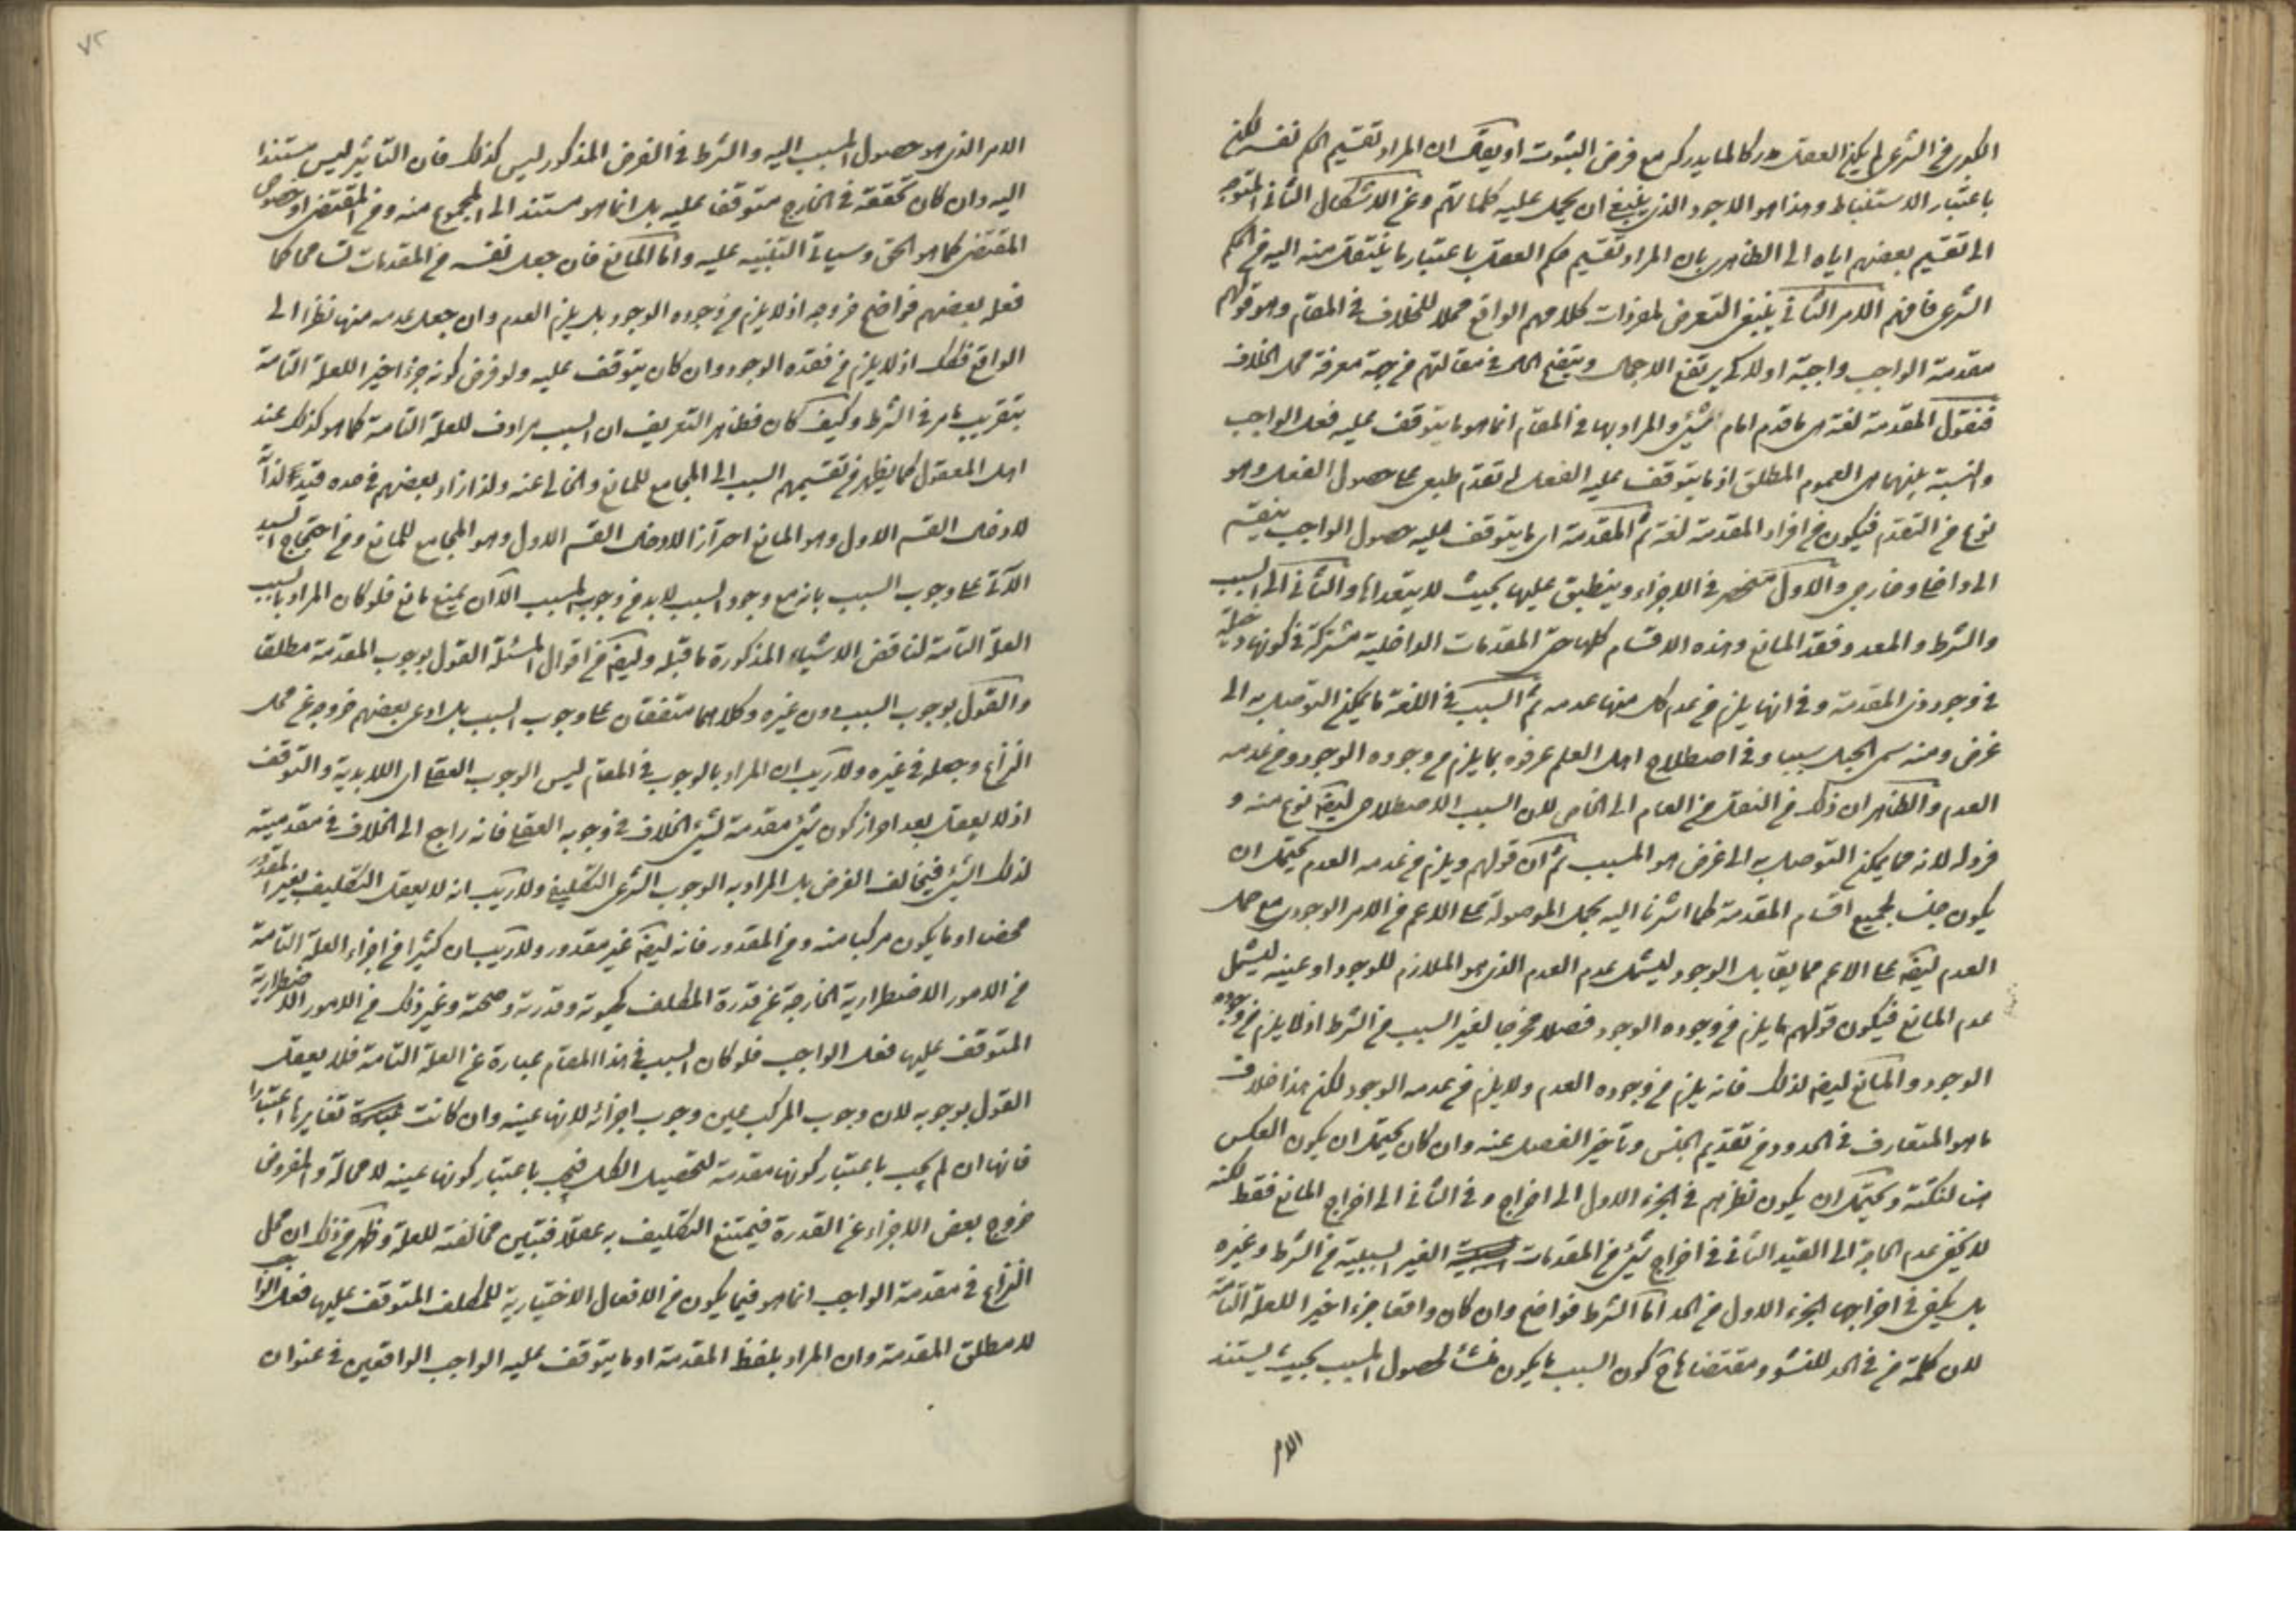 الكبرى في الشرع لم يكن العقل مدركا لما يدركه مع فرض الثبوت او يقال ان المراد تقسيم الحكم نفسه لكن
باعتبار الاستنباط وهذا هو الاجود الذي ينبغي ان يحمل عليه كلماتهم وعن الاشكال الثاني المتوجه
الى تقسيم بعضهم اياه الى الظاهري بان المراد تقسيم حكم العقل باعتبار ما ينتقل منه اليه من الحكم
الشرعي فافهم الامر الثاني ينبغي التعرض لمفردات كلامهم الواقع محلا للخلاف في المقام وهو قولهم
مقدمة الواجب واجبة اولا كي يرتفع الاجمال ويتضح الحال في مقالتهم من جهة معرفة محل الخلاف
فنقول المقدمة لغة هي ما قدم امام الشيء والمراد بها في المقام انما هو ما يتوقف عليه فعل الواجب
والنسبة بينهما هي العموم المطلق اذ ما يتوقف عليه الفعل له تقدم طبعي على حصول الفعل وهو
نوع من التقدم فيكون من افراد المقدمة لغة ثم المقدمة اي ما يتوقف عليه حصول الواجب ينقسم
الى داخلي وخارجي والاول منحصر في الاجزاء وينطبق عليها بحيث لا يتعداها والثاني الى السبب
والشرط والمعد وفقد المانع وهذه الاقسام كلها حتى المقدمات الداخلية مشتركة في كونها دخيلة
في وجود ذي المقدمة وفي انها يلزم من عدم كل منها عدمه ثم السبب في اللغة ما يمكن التوصل به الى
غرض ومنه سمي الحبل سببا وفي اصطلاح اهل العلم عرفوه بما يلزم من وجوده الوجود ومن عدمه
العدم والظاهر ان ذلك من النقل من العام الى الخاص لان السبب الاصطلاحي ايضا نوع منه و
فرد له لانه مما يمكن التوصل به الى غرض هو المسبب ثم ان قولهم ويلزم من عدمه العدم يحتمل ان
يكون جنسا لجميع اقسام المقدمة كما اشرنا اليه بحمل الموصولة على الاعم من الامر الوجودي مع حمل
العدم ايضا على الاعم مما يقابل الوجود ليشمل عدم العدم الذي هو الملازم للوجود او عينه ليشمل
عدم المانع فيكون قولهم ما يلزم من وجوده الوجود فصلا مخرجا لغير السبب من الشرط اذ لا يلزم من وجوده
الوجود والمانع ايضا لذلك فانه يلزم من وجوده العدم ولا يلزم من عدمه الوجود لكن هذا خلاف
ما هو المتعارف في الحدود من تقديم الجنس وتأخير الفصل عنه وان كان يحتمل ان يكون العكس
هنا لنكتة ويحتمل ان يكون نظرهم في الجزء الاول الى اخراج وفي الثاني الى اخراج المانع فقط لكنه
لا يخفى عدم الحاجة الى القيد الثاني في اخراج شيء من المقدمات الغير السببية من الشرط وغيره
بل يكفي في اخراجها الجزء الاول من الحد اما الشرط فواضح وان كان واقعا جزء اخيرا للعلة التامة
لان كلمة من في الحد للنشو ومقتضاها كون السبب ما يكون منشأ لحصول المسبب بحيث يستند
الامر
٧٢
الامر الذي هو حصول المسبب اليه والشرط في الفرض المذكور ليس كذلك فان التأثير ليس مستندا
اليه وان كان تحققه في الخارج متوقفا عليه بل انما هو مستند الى المجموع منه ومن المقتضي او خصوص
المقتضي كما هو الحق وسيأتي التنبيه عليه واما المانع فان جعل نفسه من المقدمات تسامحا كما
فعله بعضهم فواضح خروجه اذ لا يلزم من وجوده الوجود بل يلزم العدم وان جعل عدمه منها نظرا الى
الواقع فكك اذ لا يلزم من فقده الوجود وان كان يتوقف عليه ولو فرض كونه جزء اخيرا للعلة التامة
بتقريب ما مر في الشرط وكيف كان فظاهر التعريف ان السبب مرادف للعلة التامة كما هو كذلك عند
اهل المعقول كما يظهر من تقسيمهم السبب الى المجامع للمانع والخالي عنه ولذا زاد بعضهم في حده قيد لذاته
لادخال القسم الاول وهو المانع احترازا لادخال القسم الاول وهو المجامع للمانع ومن احتجاج السيد
الآتي على وجوب السبب بانه مع وجود السبب لا بد من وجوب المسبب الا ان يمنع مانع فلو كان المراد بالسبب
العلة التامة لناقض الاشياء المذكورة ما قبله وايضا من اقوال المسئلة القول بوجوب المقدمة مطلقا
والقول بوجوب السبب دون غيره وكلاهما متفقان على وجوب السبب بل ادعى بعضهم خروجه عن محل
النزاع وجعله في غيره ولا ريب ان المراد بالوجوب في المقام ليس الوجوب العقلي اي اللابدية والتوقف
اذ لا يعقل بعد احراز كون شيء مقدمة لشيء الخلاف في وجوبه العقلي فانه راجع الى الخلاف في مقدميته
لذلك الشيء فيخالف الفرض بل المراد به الوجوب الشرعي التكليفي ولا ريب انه لا يعقل التكليف بغير المقدور
محضا او ما يكون مركبا منه ومن المقدور فانه ايضا غير مقدور ولا ريب ان كثيرا من اجزاء العلة التامة
من الامور الاضطرارية الخارجة عن قدرة المكلف كحيوته وقدرته وصحته وغير ذلك من الامور الاضطرارية
المتوقف عليها فعل الواجب فلو كان السبب في هذا المقام عبارة عن العلة التامة فلا يعقل
القول بوجوبه لان وجوب المركب عين وجوب اجزائه لانها عينه وان كانت تغايرها اعتبارا
فانها ان لم يجب باعتبار كونها مقدمة لتحصيل الكل فيجب باعتبار كونها عينه لا محالة والمفروض
خروج بعض الاجزاء عن القدرة فيمتنع التكليف به عقلا فتبين مخالفته للعلة وظهر من ذلك ان محل
النزاع في مقدمة الواجب انما هو فيما يكون من الافعال الاختيارية للمكلف المتوقف عليها فعل الواجب
لا مطلق المقدمة وان المراد بلفظ المقدمة او ما يتوقف عليه الواجب الواقعين في عنوان